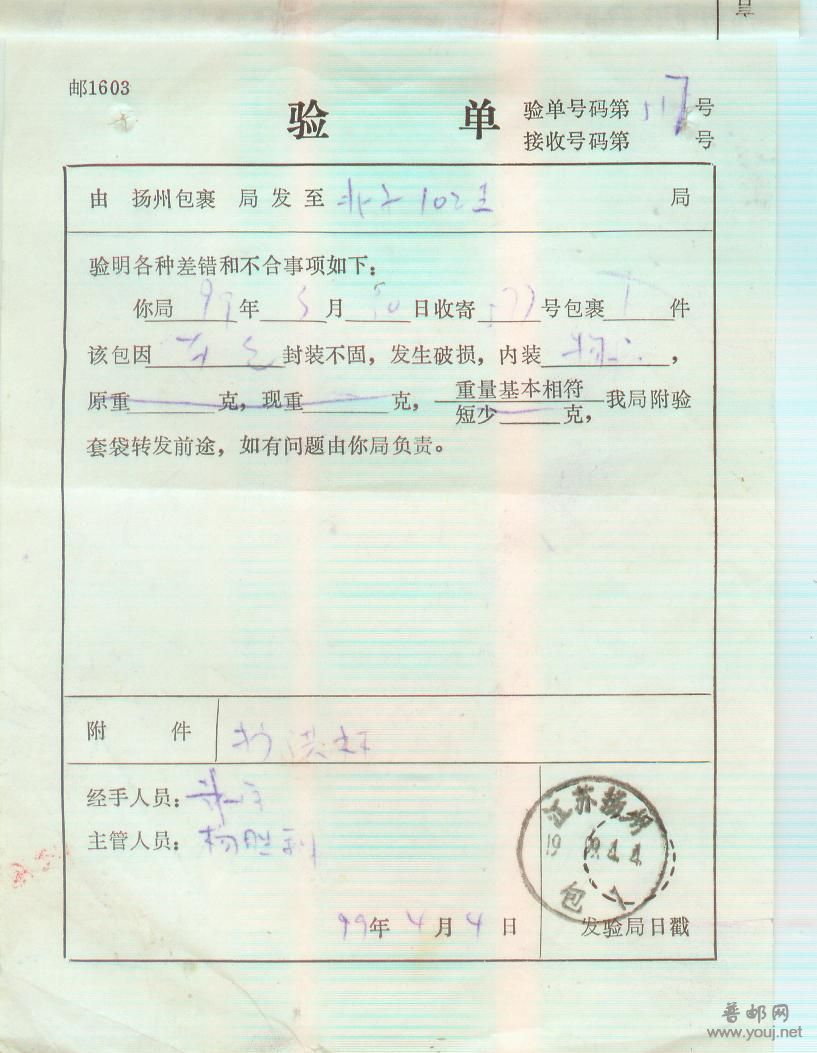 邮1603
验 单
验单号码第 117 号
接收号码第 号
由 扬州包裹 局发至 局
验明各种差错和不合事项如下：
你局 99 年 3 月 日收寄 号包裹 1 件
该包因 封装不固，发生破损，内装 ，
原重 克，现重 克，重量基本相符 我局附验
短少 克，
套袋转发前途，如有问题由你局负责。
附 件
经手人员：
主管人员：杨胜利
江苏扬州
19 99.4.4
包
99年 4 月 4 日
发验局日戳
普邮网
www.youj.net